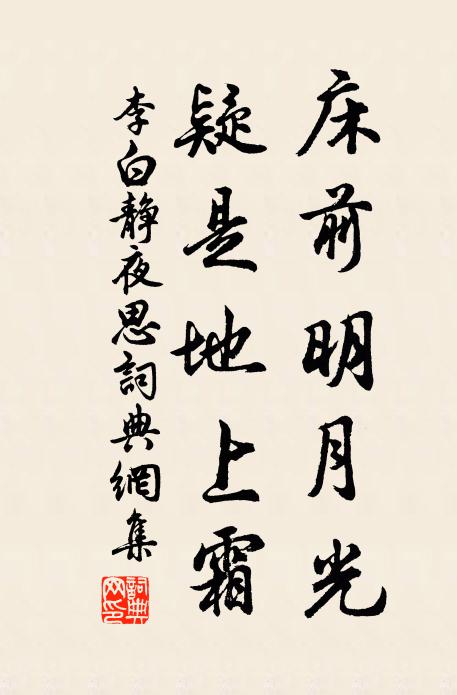 床前明月光
疑是地上霜
李白静夜思詞典網集
詞典網印